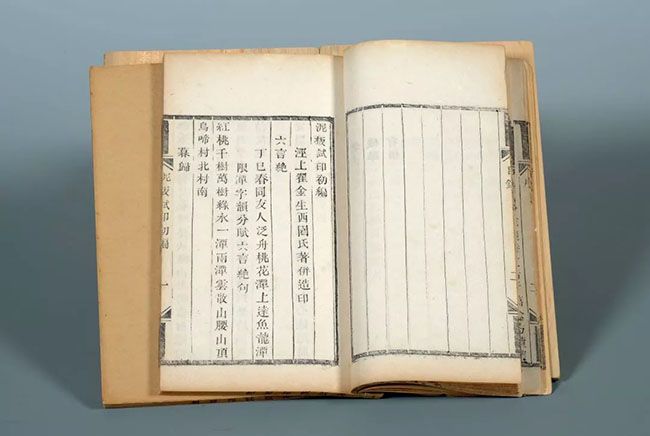 泥板試印初編
涇上翟金生西園氏著併造印
六言絶
丁巳春同友人泛舟桃花潭上達魚龍潭
限潭字韻分賦六言絶句
紅桃千樹萬樹綠水一潭兩潭雲散山腰山頂
鳥啼村北村南
暮歸
泥板試印初編 一